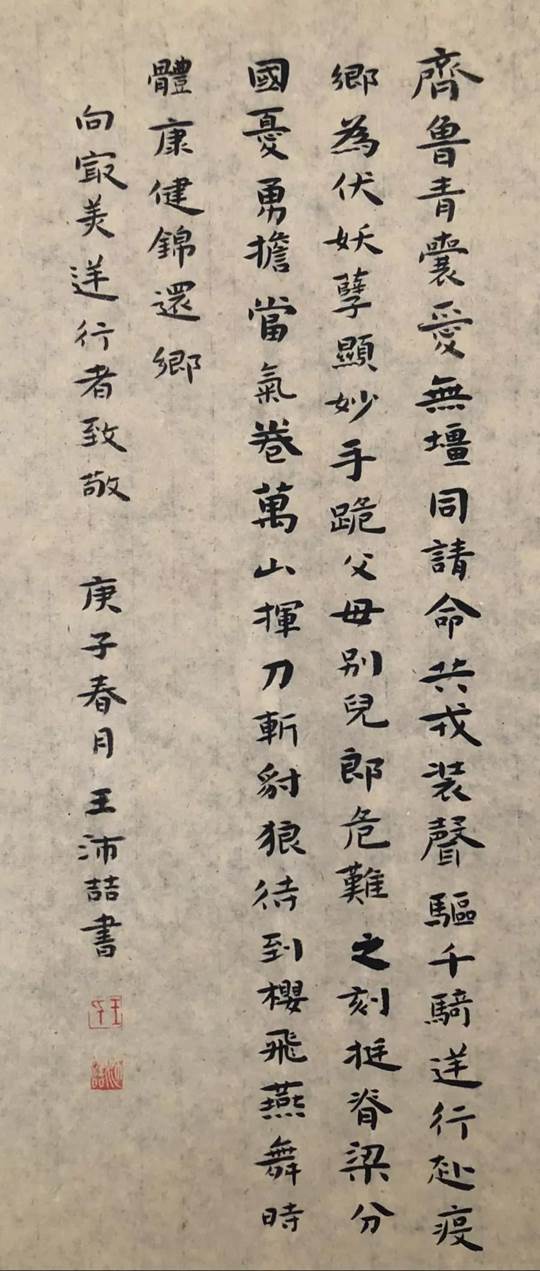 齊魯青囊愛無壃同請命共戎裝聲驅千騎逆行赴疫
鄉為伏妖孽顯妙手跪父母別兒郎危難之刻挺脊梁分
國憂勇擔當氣卷萬山揮刀斬豺狼待到櫻飛燕舞時
體康健錦還鄉
向寂美逆行者致敬 庚子春月王沛喆書